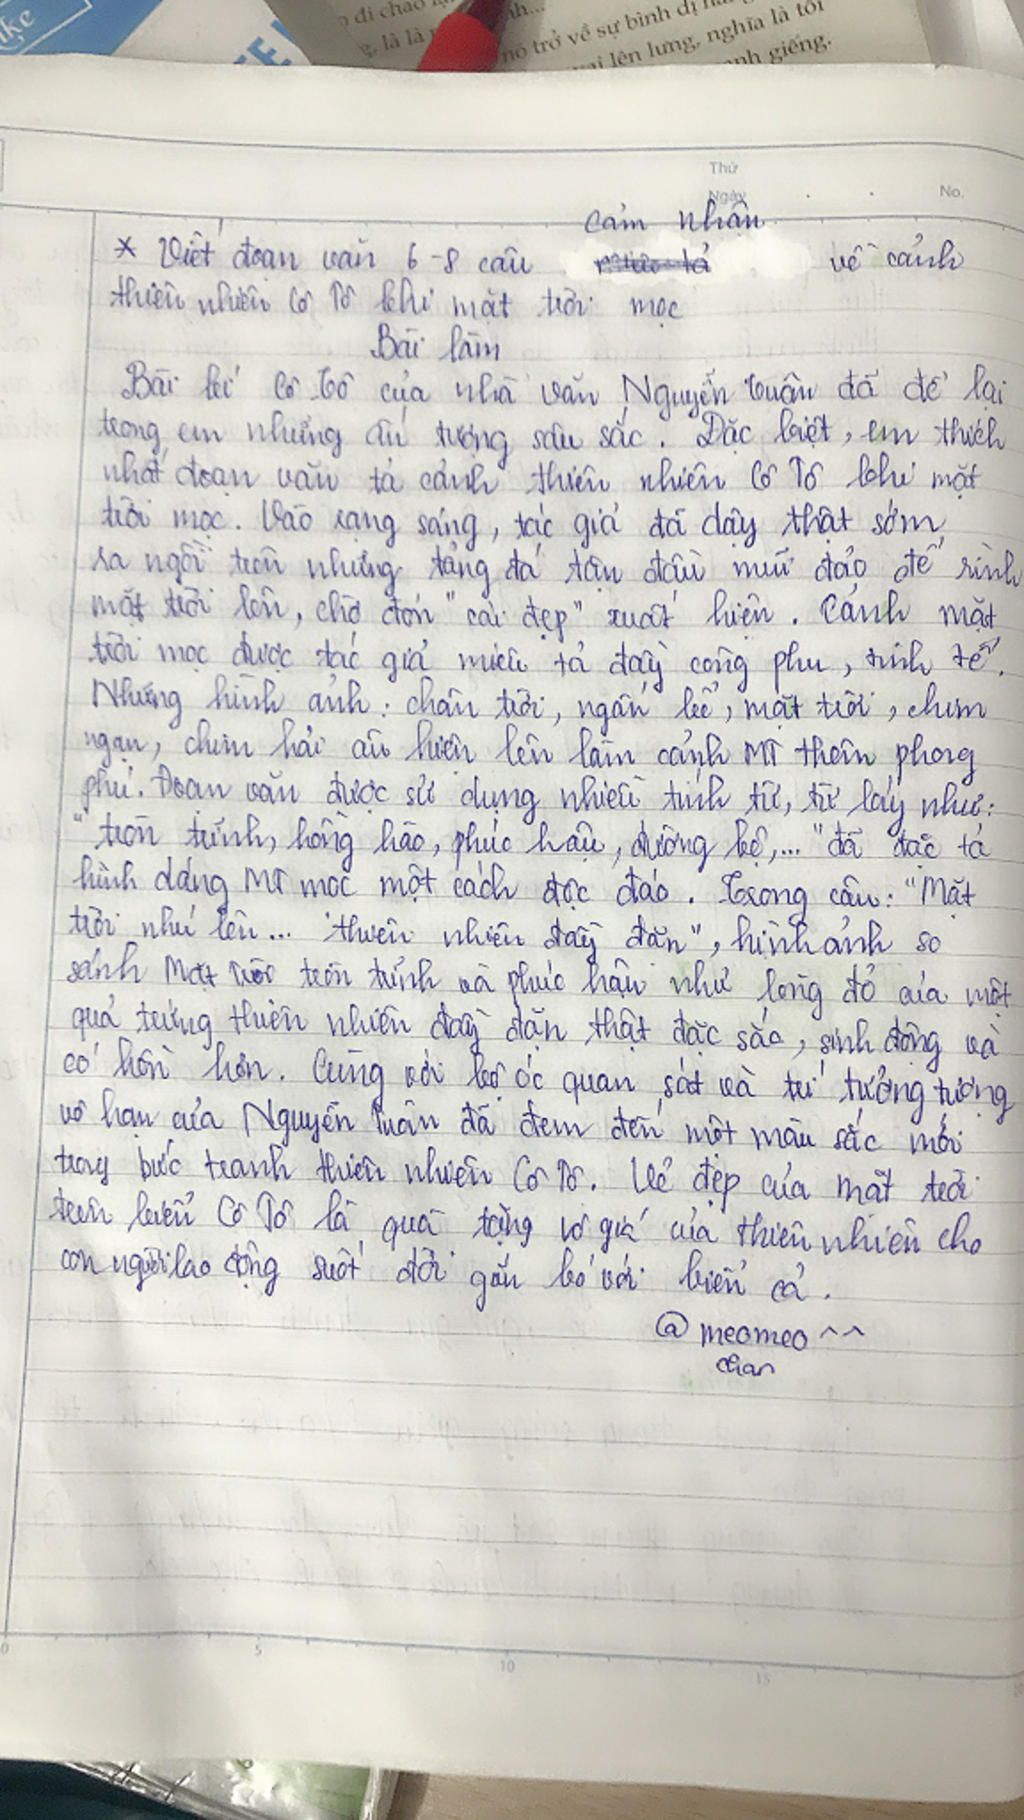 ke
đi chào lại
nh...
nó trở về sự bình dị
lên lưng, nghĩa là tôi
anh giếng.
Thứ
Ngày
No.
cảm nhận
* Viết đoạn văn 6-8 câu về cảnh
thiên nhiên Cô Tô khi mặt trời mọc
Bài làm
Bài kí Cô Tô của nhà văn Nguyễn Tuân đã để lại
trong em những ấn tượng sâu sắc. Đặc biệt, em thích
nhất đoạn văn tả cảnh thiên nhiên Cô Tô khi mặt
trời mọc. Vào rạng sáng, tác giả đã dậy thật sớm,
ra ngồi trên những tảng đá tận đầu mũi đảo để rình
mặt trời lên, chờ đón "cái đẹp" xuất hiện. Cảnh mặt
trời mọc được tác giả miêu tả đầy công phu, tinh tế.
Những hình ảnh: chân trời, ngấn bể, mặt trời, chim
nhạn, chim hải âu hiện lên làm cảnh MT thêm phong
phú. Đoạn văn được sử dụng nhiều tính từ, từ láy như:
"tròn trĩnh, hồng hào, phúc hậu, đường bệ,..." đã đặc tả
hình dáng MT mọc một cách độc đáo. Trong câu: "Mặt
trời nhú lên... thiên nhiên đầy đặn", hình ảnh so
sánh Mặt trời tròn trĩnh và phúc hậu như lòng đỏ của một
quả trứng thiên nhiên đầy đặn thật đặc sắc, sinh động và
có hồn hơn. Cùng với bộ óc quan sát và trí tưởng tượng
vô hạn của Nguyễn Tuân đã đem đến một màu sắc mới
trong bức tranh thiên nhiên Cô Tô. Vẻ đẹp của mặt trời
trên biển Cô Tô là quà tặng vô giá của thiên nhiên cho
con người lao động suốt đời gắn bó với biển cả.
@ meomeo ^^
chan
0 5 10 15